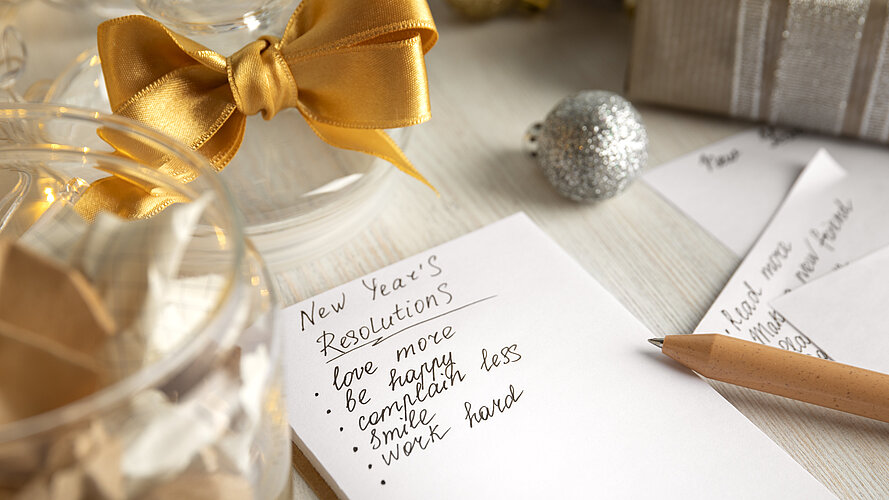 New Year's
Resolutions
• love more
• be happy
• complain less
• smile
• work hard
•
New
• Read more
new friend